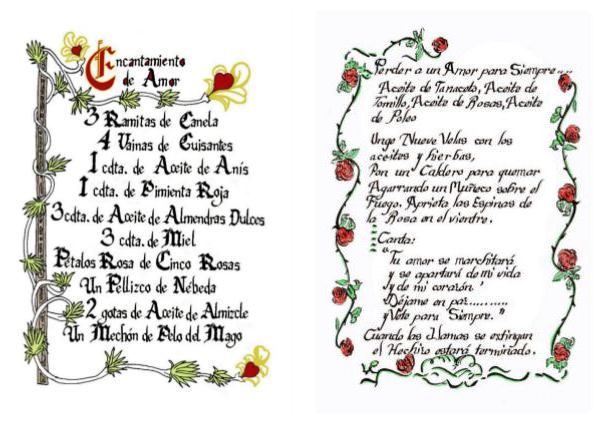 Encantamiento
de Amor
3 Ramitas de Canela
4 Vainas de Guisantes
1 cdta. de Aceite de Anís
1 cdta. de Pimienta Roja
3 cdta. de Aceite de Almendras Dulces
3 cdta. de Miel
Pétalos Rosa de Cinco Rosas
Un Pellizco de Nébeda
2 gotas de Aceite de Almizcle
Un Mechón de Pelo del Mago
Perder a un Amor para Siempre....
Aceite de Tanaceto, Aceite de
Tomillo, Aceite de Rosas, Aceite
de Poleo
Unge Nueve Velas con los
aceites y hierbas,
Pon un Caldero para quemar
Agarrando un Muñeco sobre el
Fuego. Aprieta las Espinas de
la Rosa en el vientre.
Canta:
"Tu amor se marchitará
y se apartará de mi vida
y de mi corazón
Déjame en paz..........
y Vete para Siempre."
Cuando las Llamas se extingan
el Hechizo estará terminado.